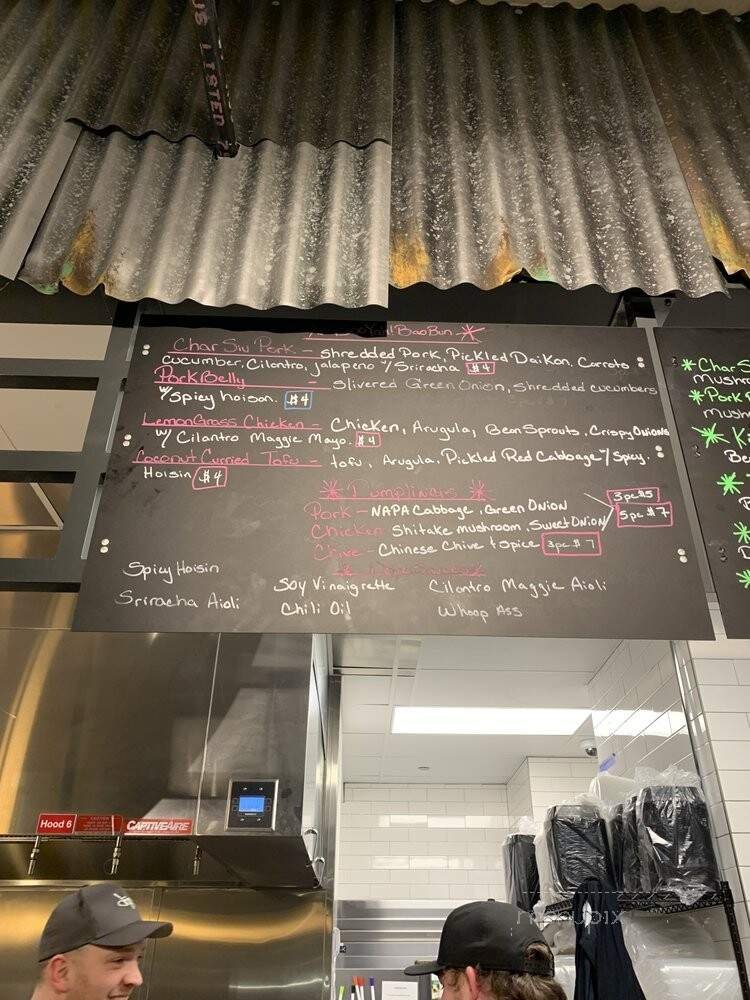 US LISTED
Bao Bun
Char Siu Pork - shredded Pork, Pickled Daikon, Carrots
cucumber, Cilantro, jalapeno w/ Sriracha $4
Pork Belly - slivered Green Onion, shredded cucumbers
w/ spicy hoison. $4
LemonGrass Chicken - Chicken, Arugula, Bean Sprouts, Crispy Onions
w/ Cilantro Maggie Mayo. $4
Coconut Curried Tofu - tofu, Arugula, Pickled Red Cabbage w/ Spicy
Hoisin $4
Dumplings
3pc $5
Pork - NAPA Cabbage, Green Onion
5pc $7
Chicken Shitake mushroom, Sweet Onion
Chive - Chinese Chive & Spice 3pc $7
Spicy Hoisin
Soy Vinaigrette
Cilantro Maggie Aioli
Sriracha Aioli
Chili Oil
Whoop Ass
Char S
mush
Pork
mush
Hood 6
CAPTIVEAIRE